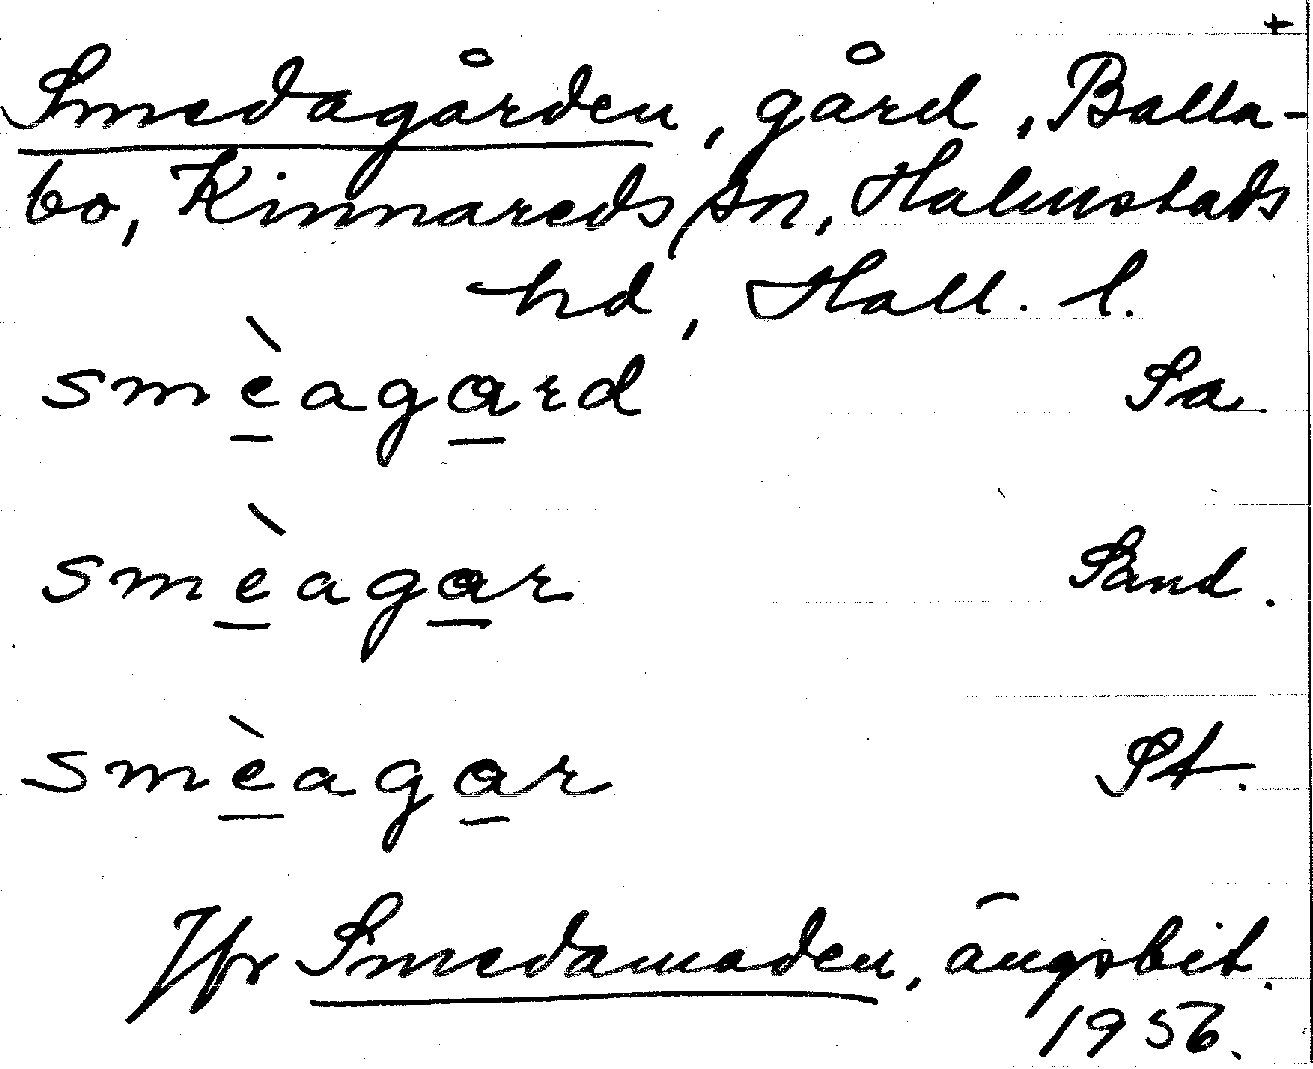 +
Smedagården, gård, Balla-
bo, Kinnareds sn, Halmstads
hd, Hall. l.
smèagard Sa.
smèagar Sand.
smèagar St.
Jfr Smedamaden, ängsbit.
1956.